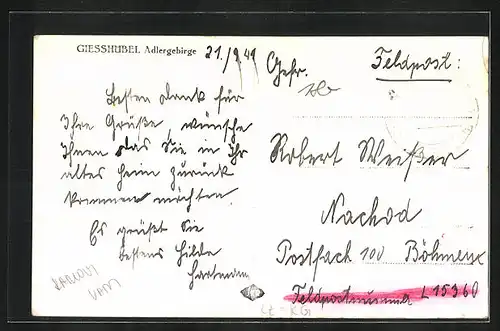 GIESSHÜBEL Adlergebirge
21./9.41
Gefr.
Feldpost:
Besten dank für
Ihre Grüße, wünsche
Ihnen das Sie in Ihr
altes heim zurück
kommen möchten.
Es grüßt Sie
bestens Hilde
Hartmann
Robert Weißer
Nachod
Postfach 100 Böhmen
Feldpostnummer L15360